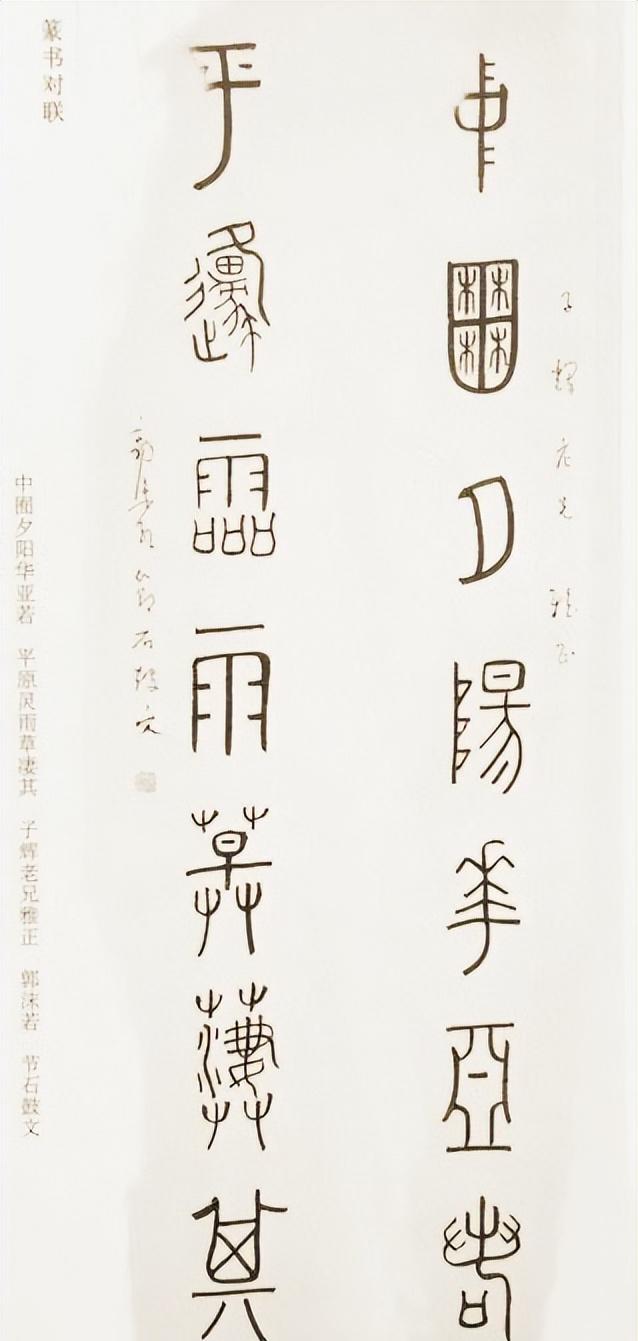 子輝老兄 雅正
中囿夕陽華亞若
平邍霝雨草淒其
郭沫若 節石鼓文
篆书对联
中囿夕阳华亚若 平原灵雨草凄其 子辉老兄雅正 郭沫若 节石鼓文